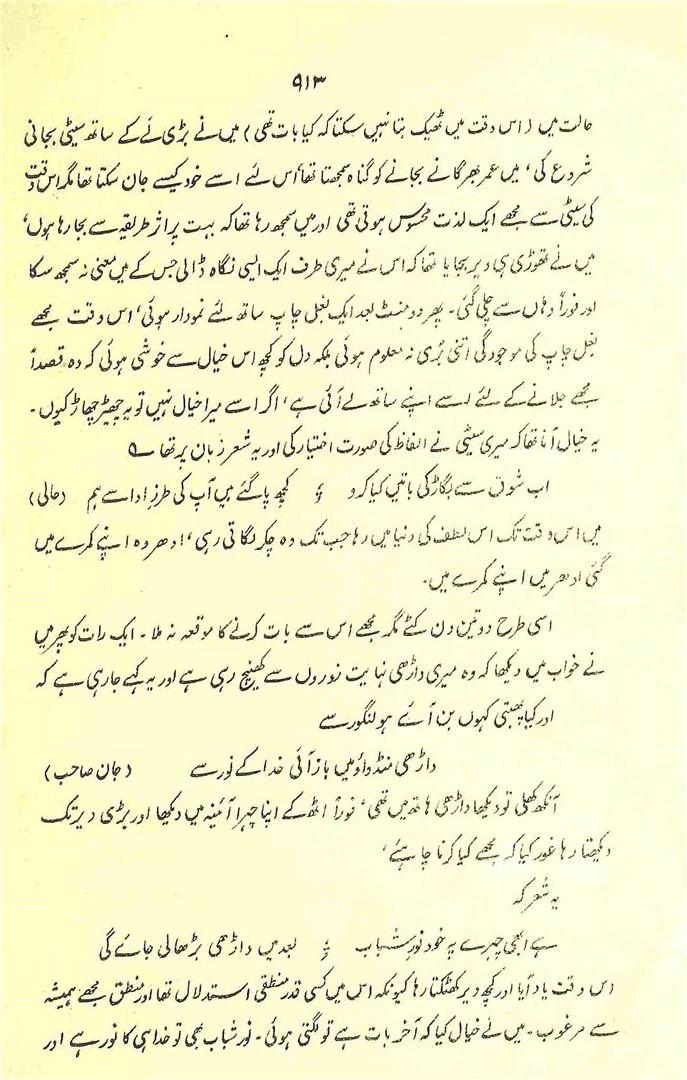 ۹۱۳
حالت میں (اس وقت میں ٹھیک بتا نہیں سکتا کہ کیا بات تھی) میں نے بڑی نے کے ساتھ سیٹی بجانی
شروع کی، میں عمر بھر گانے بجانے کو گناہ سمجھتا تھا اس لئے اسے خود کیسے جان سکتا تھا مگر اس وقت
کی سیٹی سے مجھے ایک لذت محسوس ہوتی تھی اور میں سمجھ رہا تھا کہ بہت پر اثر طریقہ سے بجا رہا ہوں،
میں نے تھوڑی ہی دیر بجایا تھا کہ اس نے میری طرف ایک ایسی نگاہ ڈالی جس کے میں معنی نہ سمجھ سکا
اور فوراً وہاں سے چلی گئی۔ پھر دو منٹ بعد ایک بغل چاپ ساتھ لئے نمودار ہوئی، اس وقت مجھے
بغل چاپ کی موجودگی اتنی بُری نہ معلوم ہوئی بلکہ دل کو کچھ اس خیال سے خوشی ہوئی کہ وہ قصداً
مجھے جلانے کے لئے اسے اپنے ساتھ لے آئی ہے، اگر اسے میرا خیال نہیں تو یہ چھیڑ چھاڑ کیوں۔
یہ خیال آنا تھا کہ میری سیٹی نے الفاظ کی صورت اختیار کی اور یہ شعر زبان پر تھا ؎
اب شوق سے بگاڑ کی باتیں کیا کرو ؛ کچھ پا گئے ہیں آپ کی طرزِ ادا سے ہم (حالی)
میں اس وقت تک اس لطف کی دنیا میں رہا جب تک وہ چکر لگاتی رہی، ادھر وہ اپنے کمرے میں
گئی ادھر میں اپنے کمرے میں۔
اسی طرح دو تین دن کٹے مگر مجھے اس سے بات کرنے کا موقعہ نہ ملا۔ ایک رات کو پھر میں
نے خواب میں دیکھا کہ وہ میری داڑھی نہایت زوروں سے کھینچ رہی ہے اور یہ کہے جا رہی ہے کہ
اور کیا پھبتی کہوں بن آئے ہو لنگور سے
داڑھی منڈواؤ میں باز آئی خدا کے نور سے (جان صاحب)
آنکھ کھلی تو دیکھا داڑھی ہاتھ میں تھی، فوراً اٹھ کے اپنا چہرا آئینہ میں دیکھا اور بڑی دیر تک
دیکھتا رہا غور کیا کہ مجھے کیا کرنا چاہئے،
یہ شعر کہ
ہے ابھی چہرے پہ خود نورِ شباب ؛ بعد میں داڑھی بڑھا لی جائے گی
اس وقت یاد آیا اور کچھ دیر کھٹکتا رہا کیونکہ اس میں کسی قدر منطقی استدلال تھا اور منطق مجھے ہمیشہ
سے مرغوب۔ میں نے خیال کیا کہ آخر بات ہے تو لگتی ہوئی۔ نورِ شباب بھی تو خدا ہی کا نور ہے اور